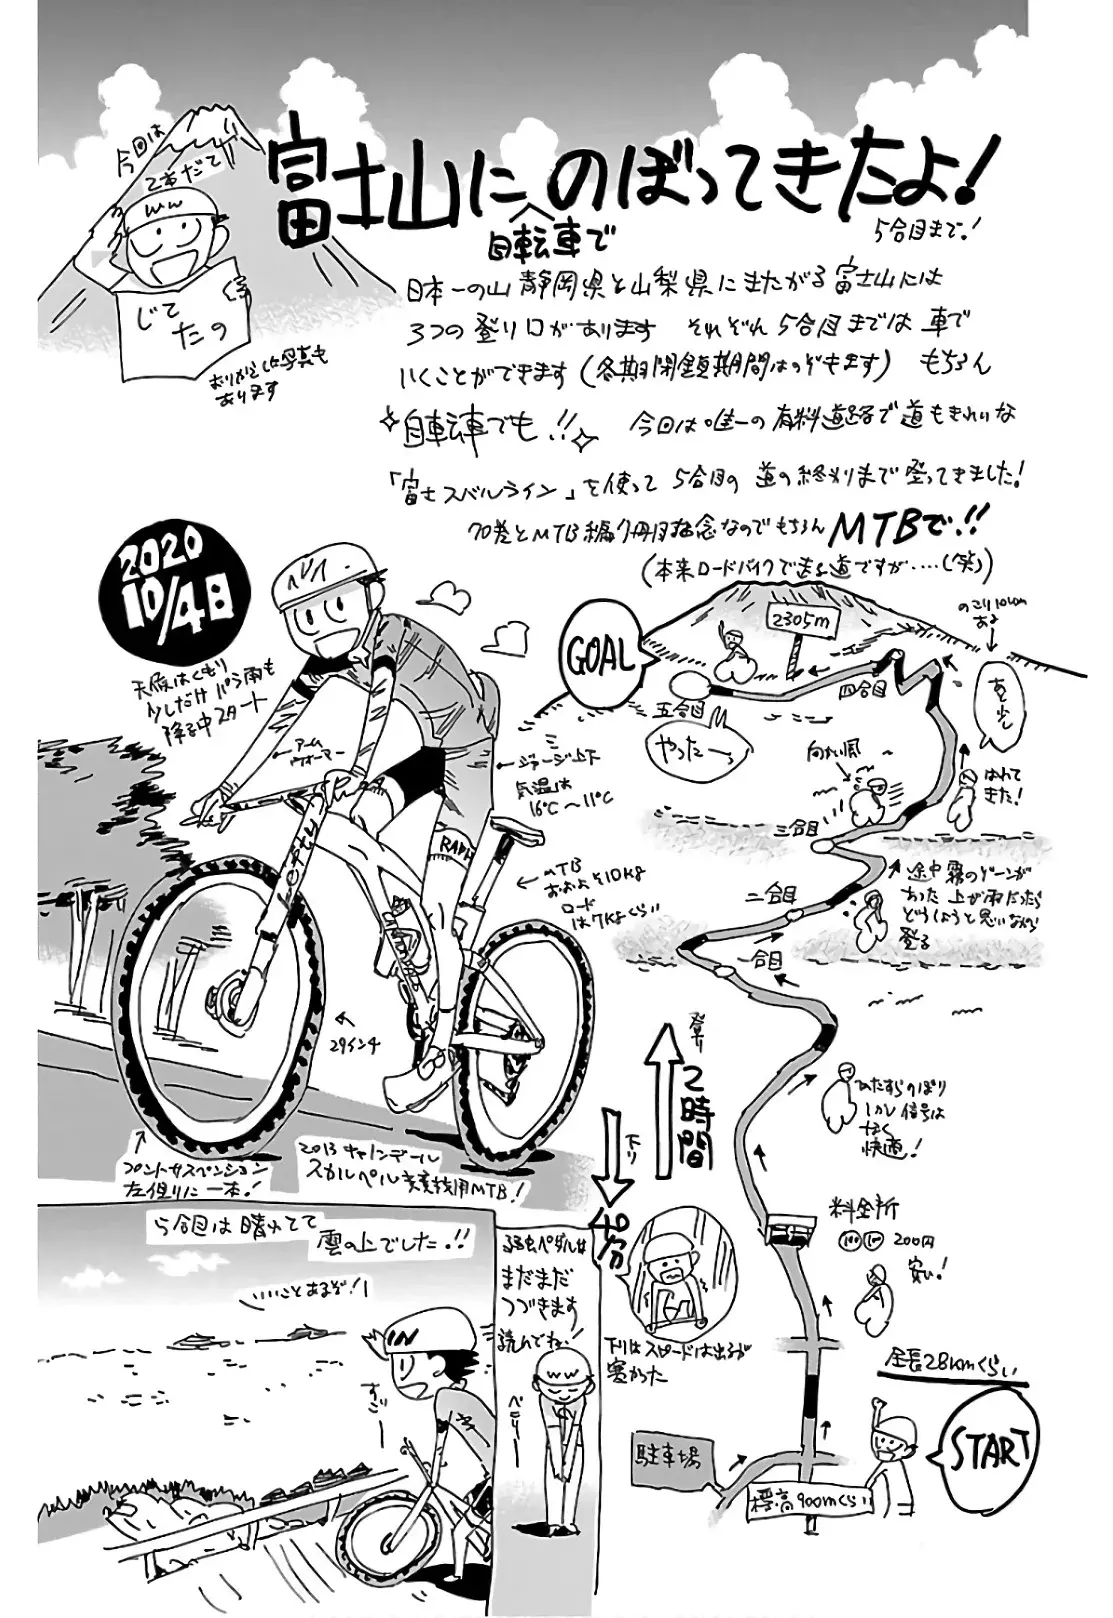 富士山にのぼってきたよ!
自転車で
5合目まで!
今回は
2本だて
WW
じてたの
おりがえしに写真も
あります
日本一の山 静岡県と山梨県にまたがる富士山には
3つの登り口があります それぞれ5合目までは車で
いくことができます(冬期閉鎖期間はのぞきます) もちろん
自転車でも!!
今回は唯一の有料道路で道もきれいな
「富士スバルライン」を使って 5合目の 道の終わりまで登ってきました!
70巻とMTB編9冊目記念なのでもちろん MTBで!!
(本来ロードバイクで走る道ですが....(笑))
2020
10/4日
天候はくもり
少しだけパラ雨も
降る中スタート
アーム
ウォーマー
ジャージ上下
気温は
16℃~11℃
RAPH
MTB
おおよそ10kg
ロード
は7kgくらい
29インチ
フロントサスペンション
左側に一本!
2013 キャノンデール
スカルペル 競技用MTB!
GOAL
2305m
のこり10km
あたり
あと少し
四合目
五合目
やったーっ
向かい風
はれて
きた!
三合目
途中霧のゾーンが
あった 上が雨だったら
どうしようと思いながら
登る
二合目
一合目
登り
2時間
下り
40分
ひたすらのぼり
しかし信号は
なく
快適!
料金所
100 100 200円
安い!
下りはスピードは出るが
寒かった
全長28kmくらい
START
駐車場
標高900mくらい
5合目は晴れてて
雲の上でした!!
いいことあるぞ!
すごい
弱虫ペダルは
まだまだ
つづきます
読んでね!
WW
ペこり